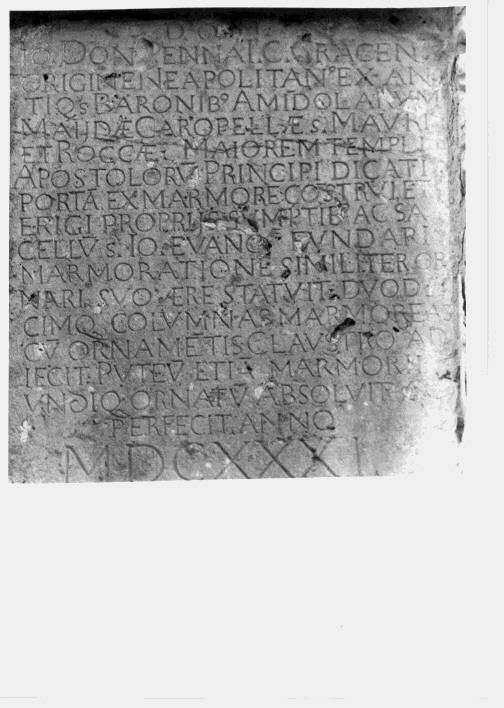 D. O. M.
IO. DON PENNA I. C. GRACEN
ORIGINE NEAPOLITAN9 EX AN
TIQ.S BARONIB9 AMIDOLARUM
MAIJDÆ CAROPELLÆ S. MAURI
ET ROCCÆ MAIOREM TEMPLI
APOSTOLORŪ PRINCIPI DICATI
PORTĀ EX MARMORE COSTRUI ET
ERIGI PROPRIIS SUMPTIB AC SA
CELLŪ S. IO. EVANG FUNDARI
MARMORATIONE SIMILITER OR
NARI SUO ÆRE STATUIT DUOD
CIMQ COLUMNAS MARMOREAS
CŪ ORNAMĒTIS CLAUSTRO AD
IECIT PUTEŪ ETIĀ MARMORE
UNDIQ ORNATŪ ABSOLVIT
PERFECIT ANNO
MDCXXXI